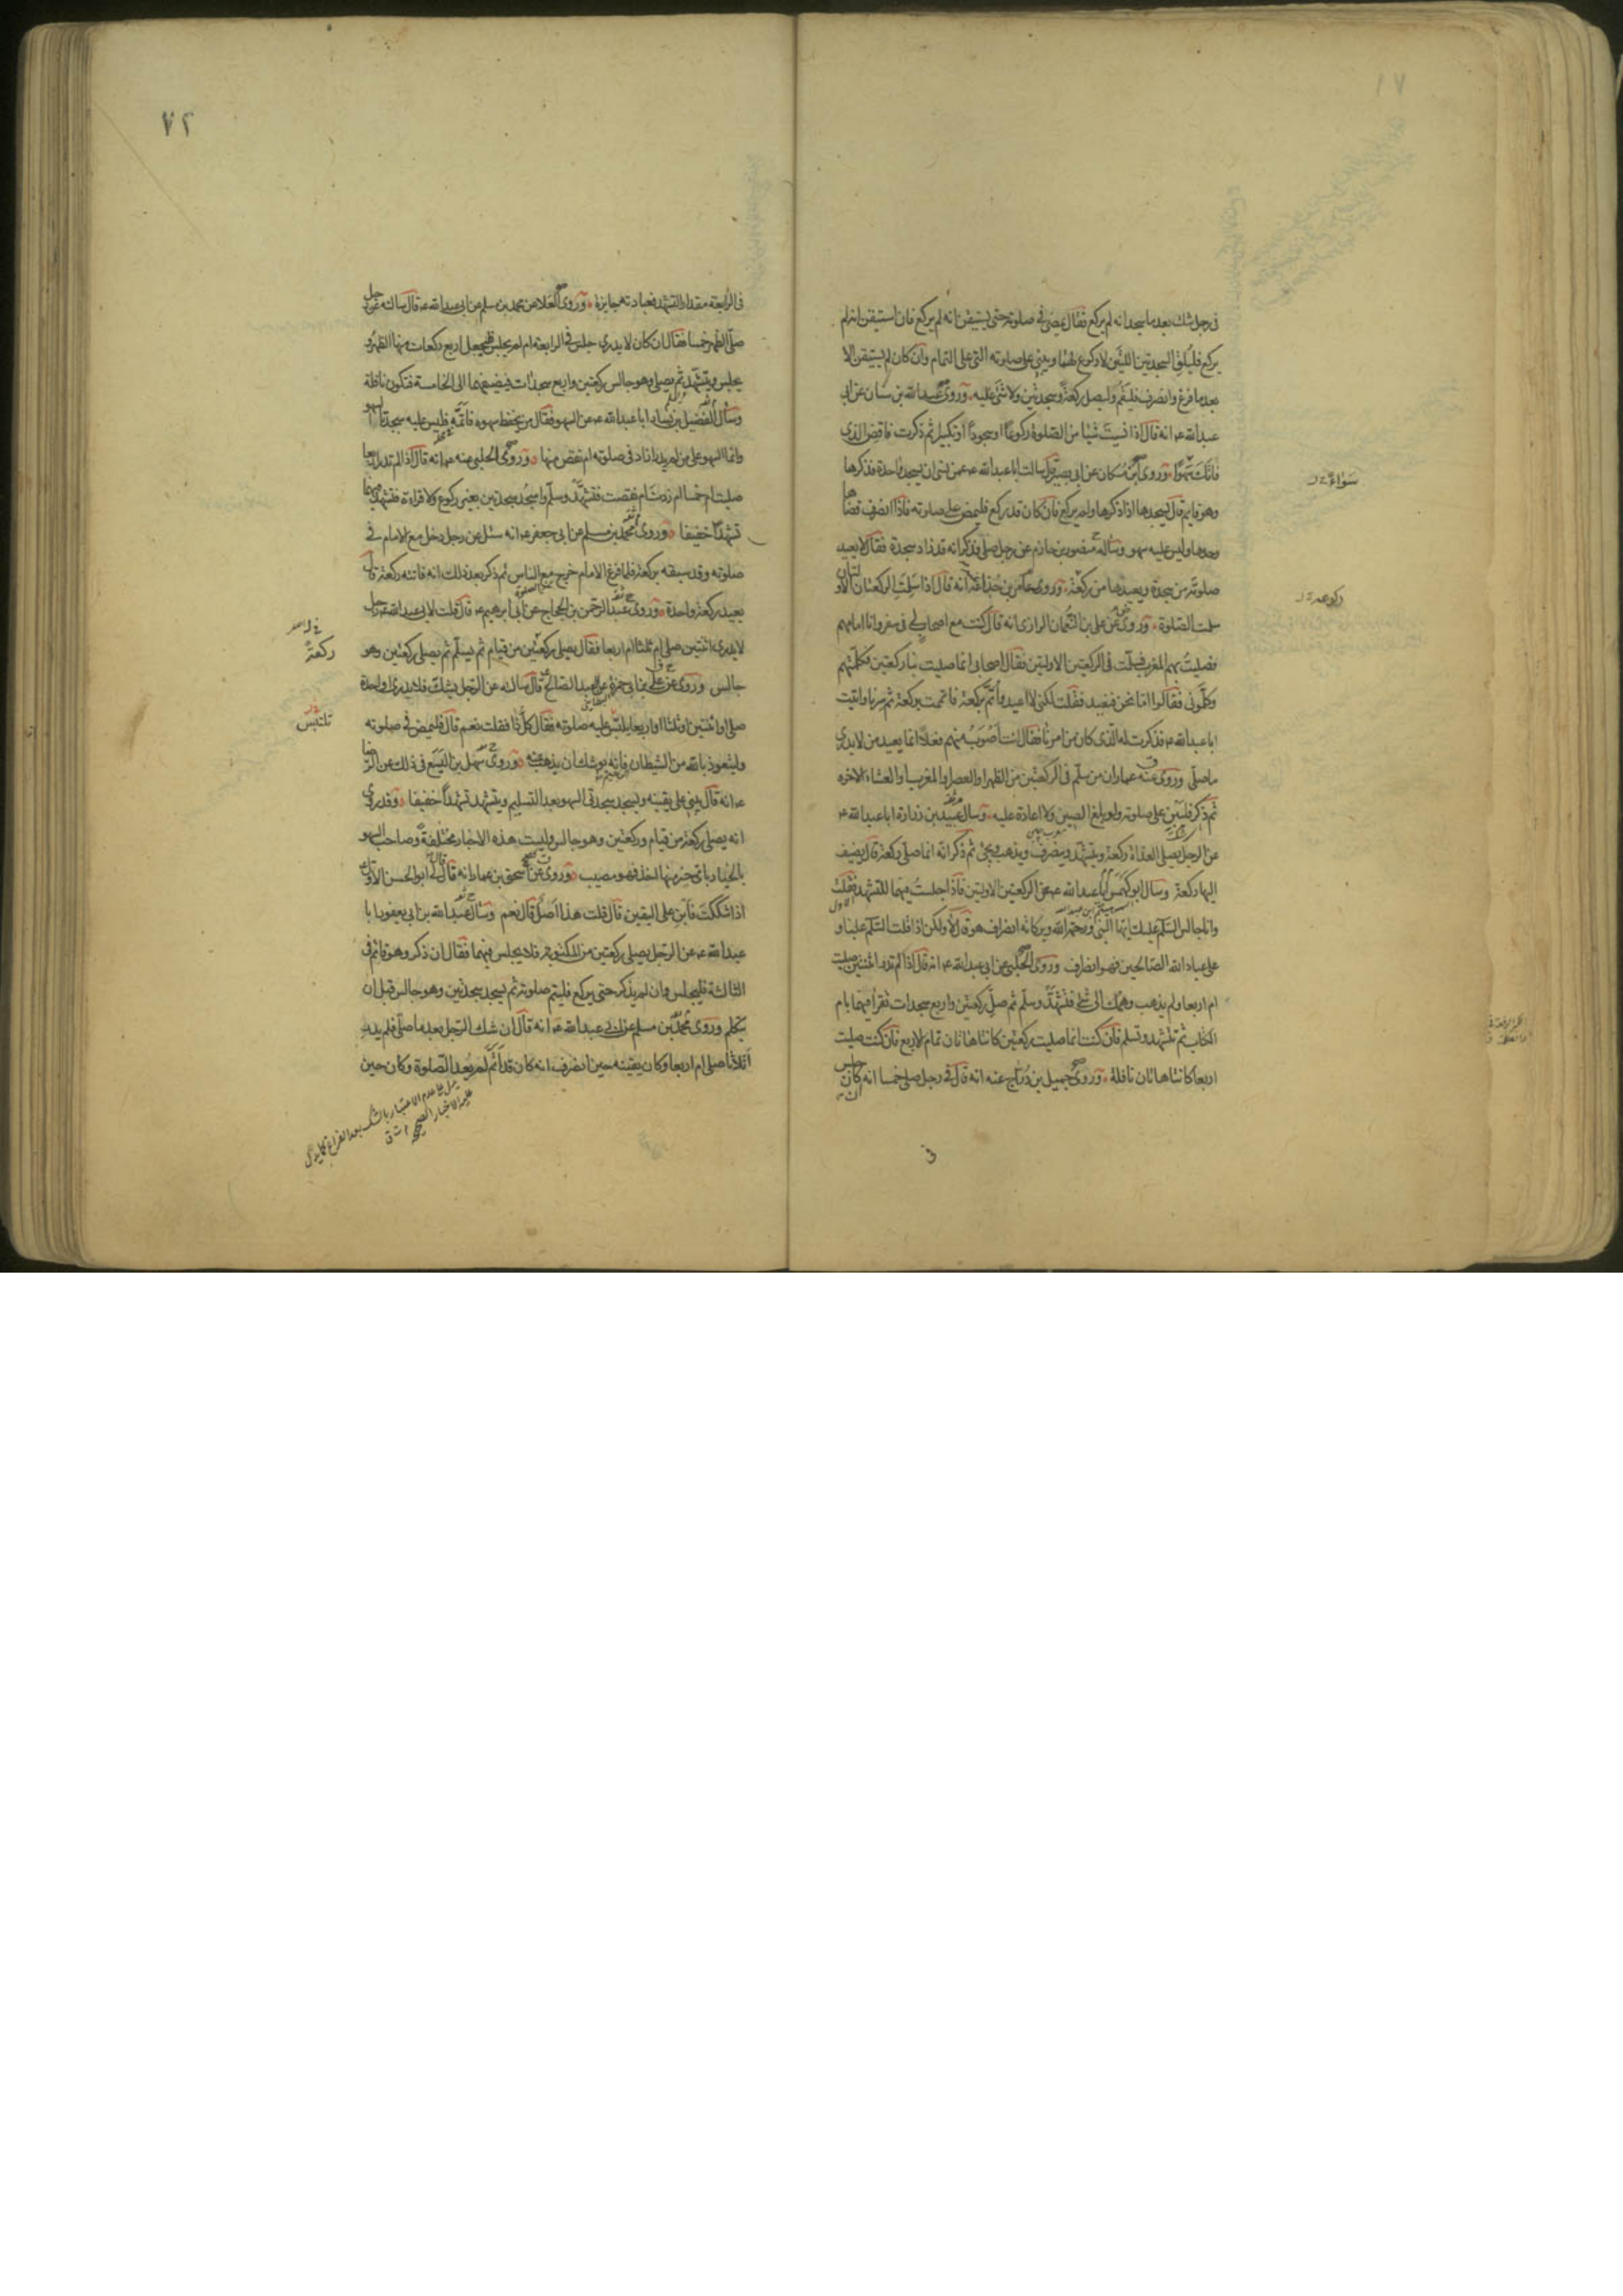 في رجل شك بعد ما سجد انه لم يركع فقال يمضي في صلوته حتى يستيقن انه لم يركع فان استيقن انه لم
يركع فليلق السجدتين اللتين لا ركوع لهما ويبني على صلوته التي على التمام وان كان لم يستيقن الا
بعد ما فرغ وانصرف فليقم وليصل ركعة وسجدتين ولا شئ عليه وروى عبد الله بن سنان عن ابي
عبد الله ع انه قال اذا نسيت شيئا من الصلوة ركوعا او سجودا او تكبيرا ثم ذكرت فاقض الذي
فاتك سهوا وروى ابن مسكان عن ابي بصير قال سالت ابا عبد الله ع عمن نسى ان يسجد واحدة فذكرها
وهو قايم قال يسجدها اذا ذكرها ولم يركع فان كان قد ركع فليمض على صلوته فاذا انصرف قضاها
وحدها وليس عليه سهو وساله منصور بن حازم عن رجل صلى فذكر انه قد زاد سجدة فقال لا يعيد
صلوته من سجدة ويعيدها من ركعة وروى عامر بن جذاعة عنه انه قال اذا سلمت الركعتان الاولتان
سلمت الصلوة وروى عن علي بن النعمان الرازي انه قال كنت مع اصحاب لي في سفر وانا امامهم
فصليت بهم المغرب فسلمت في الركعتين الاولتين فقال اصحابي انما صليت بنا ركعتين فكلمتهم
وكلموني فقالوا اما نحن فنعيد فقلت لكني لا اعيد واتم بركعة فاتممت بركعة ثم سرنا واتيت
ابا عبد الله ع فذكرت له الذي كان من امرنا فقال انت اصوب منهم فعلا انما يعيد من لا يدري
ما صلى وروى عنه عمار ان من سلم في الركعتين من الظهر او العصر او المغرب او العشاء الاخرة
ثم ذكر فليبن على صلوته ولو بلغ الصين ولا اعادة عليه وسال عبيد بن زرارة ابا عبد الله ع
عن الرجل يصلي الغداة ركعة ويتشهد وينصرف ويذهب ويجئ ثم ذكر انه انما صلى ركعة قال يضيف
اليها ركعة وسال ابو كهمس ابا عبد الله ع عن الركعتين الاولتين فاذا جلست فيهما للتشهد فقلت
وانا جالس السلم عليك ايها النبي ورحمة الله وبركاته انصراف هو قال لا ولكن اذا قلت السلم علينا و
على عباد الله الصالحين فهو انصراف وروى الحلبي عن ابي عبد الله ع انه قال اذا لم تدر اثنتين صليت
ام اربعا ولم يذهب وهمك الى شئ فتشهد وسلم ثم صل ركعتين واربع سجدات تقرأ فيهما بام
الكتاب ثم تشهد وتسلم فان كنت انما صليت ركعتين كانتا هاتان تمام الاربع فان كنت صليت
اربعا كانتا هاتان نافلة وروى جميل بن دراج عنه انه قال في رجل صلى خمسا انه ان كان جلس
سواء
ركوعه
في
٧٢
في الرابعة مقدار التشهد فعبادته جايزة وروى العلا عن محمد بن مسلم عن ابي عبد الله ع قال سالته عن رجل
صلى الظهر خمسا فقال ان كان لا يدري جلس في الرابعة ام لم يجلس فليجعل اربع ركعات منها الظهر و
يجلس ويتشهد ثم يصلي وهو جالس ركعتين واربع سجدات فيضيفها الى الخامسة فتكون نافلة
وسال الفضيل بن يسار ابا عبد الله ع عن السهو فقال من يحفظ سهوه فاتمه فليس عليه سجدتا السهو
وانما السهو على من لم يدر ازاد في صلوته ام نقص منها وروى الحلبي عنه ع انه قال اذا لم تدر اربعا
صليت ام خمسا ام زدت ام نقصت فتشهد وسلم واسجد سجدتين بغير ركوع ولا قراءة فتشهد فيهما
تشهدا خفيفا وروى محمد بن مسلم عن ابي جعفر ع انه سئل عن رجل دخل مع الامام في
صلوته وقد سبقه بركعة فلما فرغ الامام خرج مع الناس ثم ذكر بعد ذلك انه فاتته ركعة قال
يعيد ركعة واحدة وروى عبد الرحمن بن الحجاج عن ابي ابرهيم ع قال قلت لابي عبد الله ع رجل
لا يدري اثنتين صلى ام ثلثا ام اربعا فقال يصلي ركعتين من قيام ثم يسلم ثم يصلي ركعتين وهو
جالس وروى عن علي بن ابي حمزة عن العبد الصالح ع قال سالته عن الرجل يشك فلا يدري واحدة
صلى او اثنتين او ثلثا او اربعا يلتبس عليه صلوته فقال كل ذا فقلت نعم قال فليمض في صلوته
وليتعوذ بالله من الشيطان فانه يوشك ان يذهب عنه وروى سهل بن اليسع في ذلك عن الرضا
ع انه قال يبني على يقينه ويسجد سجدتي السهو بعد التسليم ويتشهد تشهدا خفيفا وقد روي
انه يصلي ركعة من قيام وركعتين وهو جالس وليست هذه الاخبار مختلفة وصاحب السهو
بالخيار باي خبر منها اخذ فهو مصيب وروى عن اسحق بن عمار انه قال قال لي ابو الحسن الاول
اذا شككت فابن على اليقين قال قلت هذا اصل قال نعم وسال عبد الله بن ابي يعفور ابا
عبد الله ع عن الرجل يصلي ركعتين من المكتوبة فلا يجلس فيهما فقال ان ذكر وهو قائم في
الثالثة فليجلس وان لم يذكر حتى يركع فليتم صلوته ثم يسجد سجدتين وهو جالس قبل ان
يتكلم وروى محمد بن مسلم عن ابي عبد الله ع انه قال ان شك الرجل بعد ما صلى فلم يدر
اثلاثا صلى ام اربعا وكان يقينه حين انصرف انه كان قد اتم لم يعد الصلوة وكان حين
ركعة
تلتبس